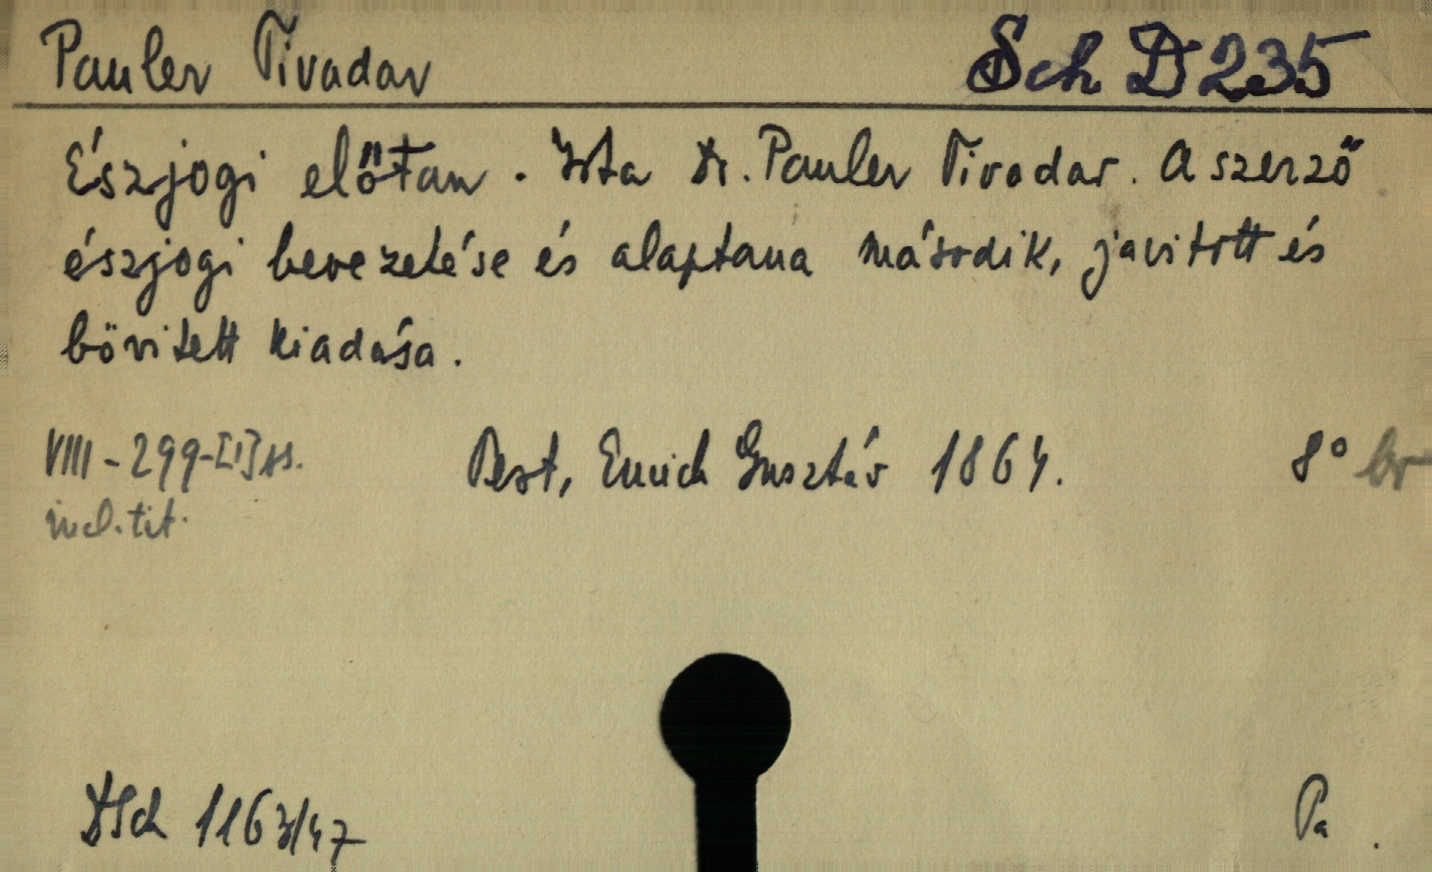 Pauler Tivadar Sch D 235
Észjogi előtan. Irta Dr. Pauler Tivadar. A szerző
észjogi bevezetése és alaptana második, javitott és
bövitett kiadása.
VIII-299-[1] ss. Pest, Emich Gusztáv 1864. 8° br
incl. tit.
DSch 1163/47 Pa.